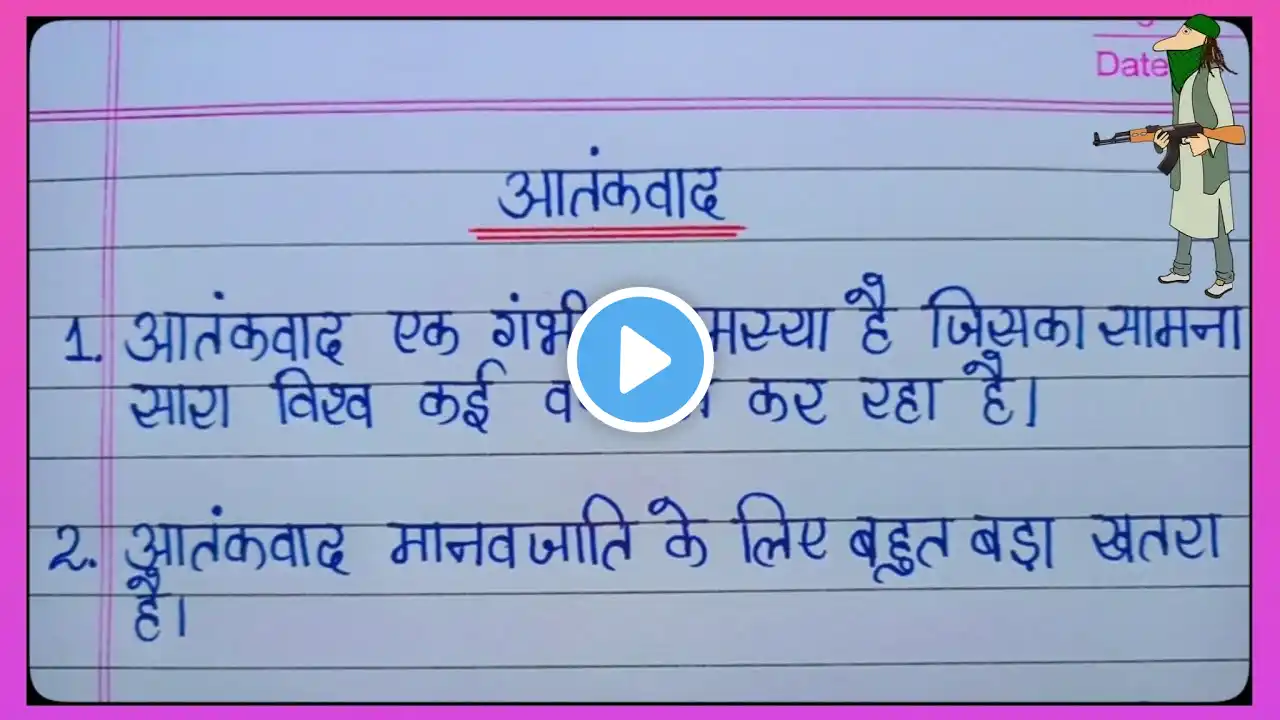 Date
आतंकवाद
1. आतंकवाद एक है जिसका सामना
सारा विश्व कई कर रहा है।
2. आतंकवाद मानवजाति के लिए बहुत बड़ा खतरा
है।